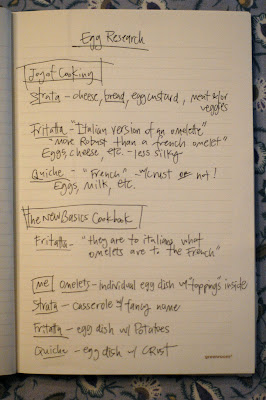 Egg Research
Joy of Cooking
Strata - cheese, bread, egg custard, meat &/or
veggies
Frittata "Italian version of an omelette"
"more Robust than a french omelet"
Eggs, cheese, etc. - less silky
Quiche - "French" - w/crust or not!
Eggs, milk, etc.
The New Basics Cookbook
Frittata - "they are to italians what
omelets are to the French"
me omelets - individual egg dish w/ "toppings" inside
Strata - casserole w/ fancy name
Frittata - egg dish w/ Potatoes
Quiche - egg dish w/ CRUST